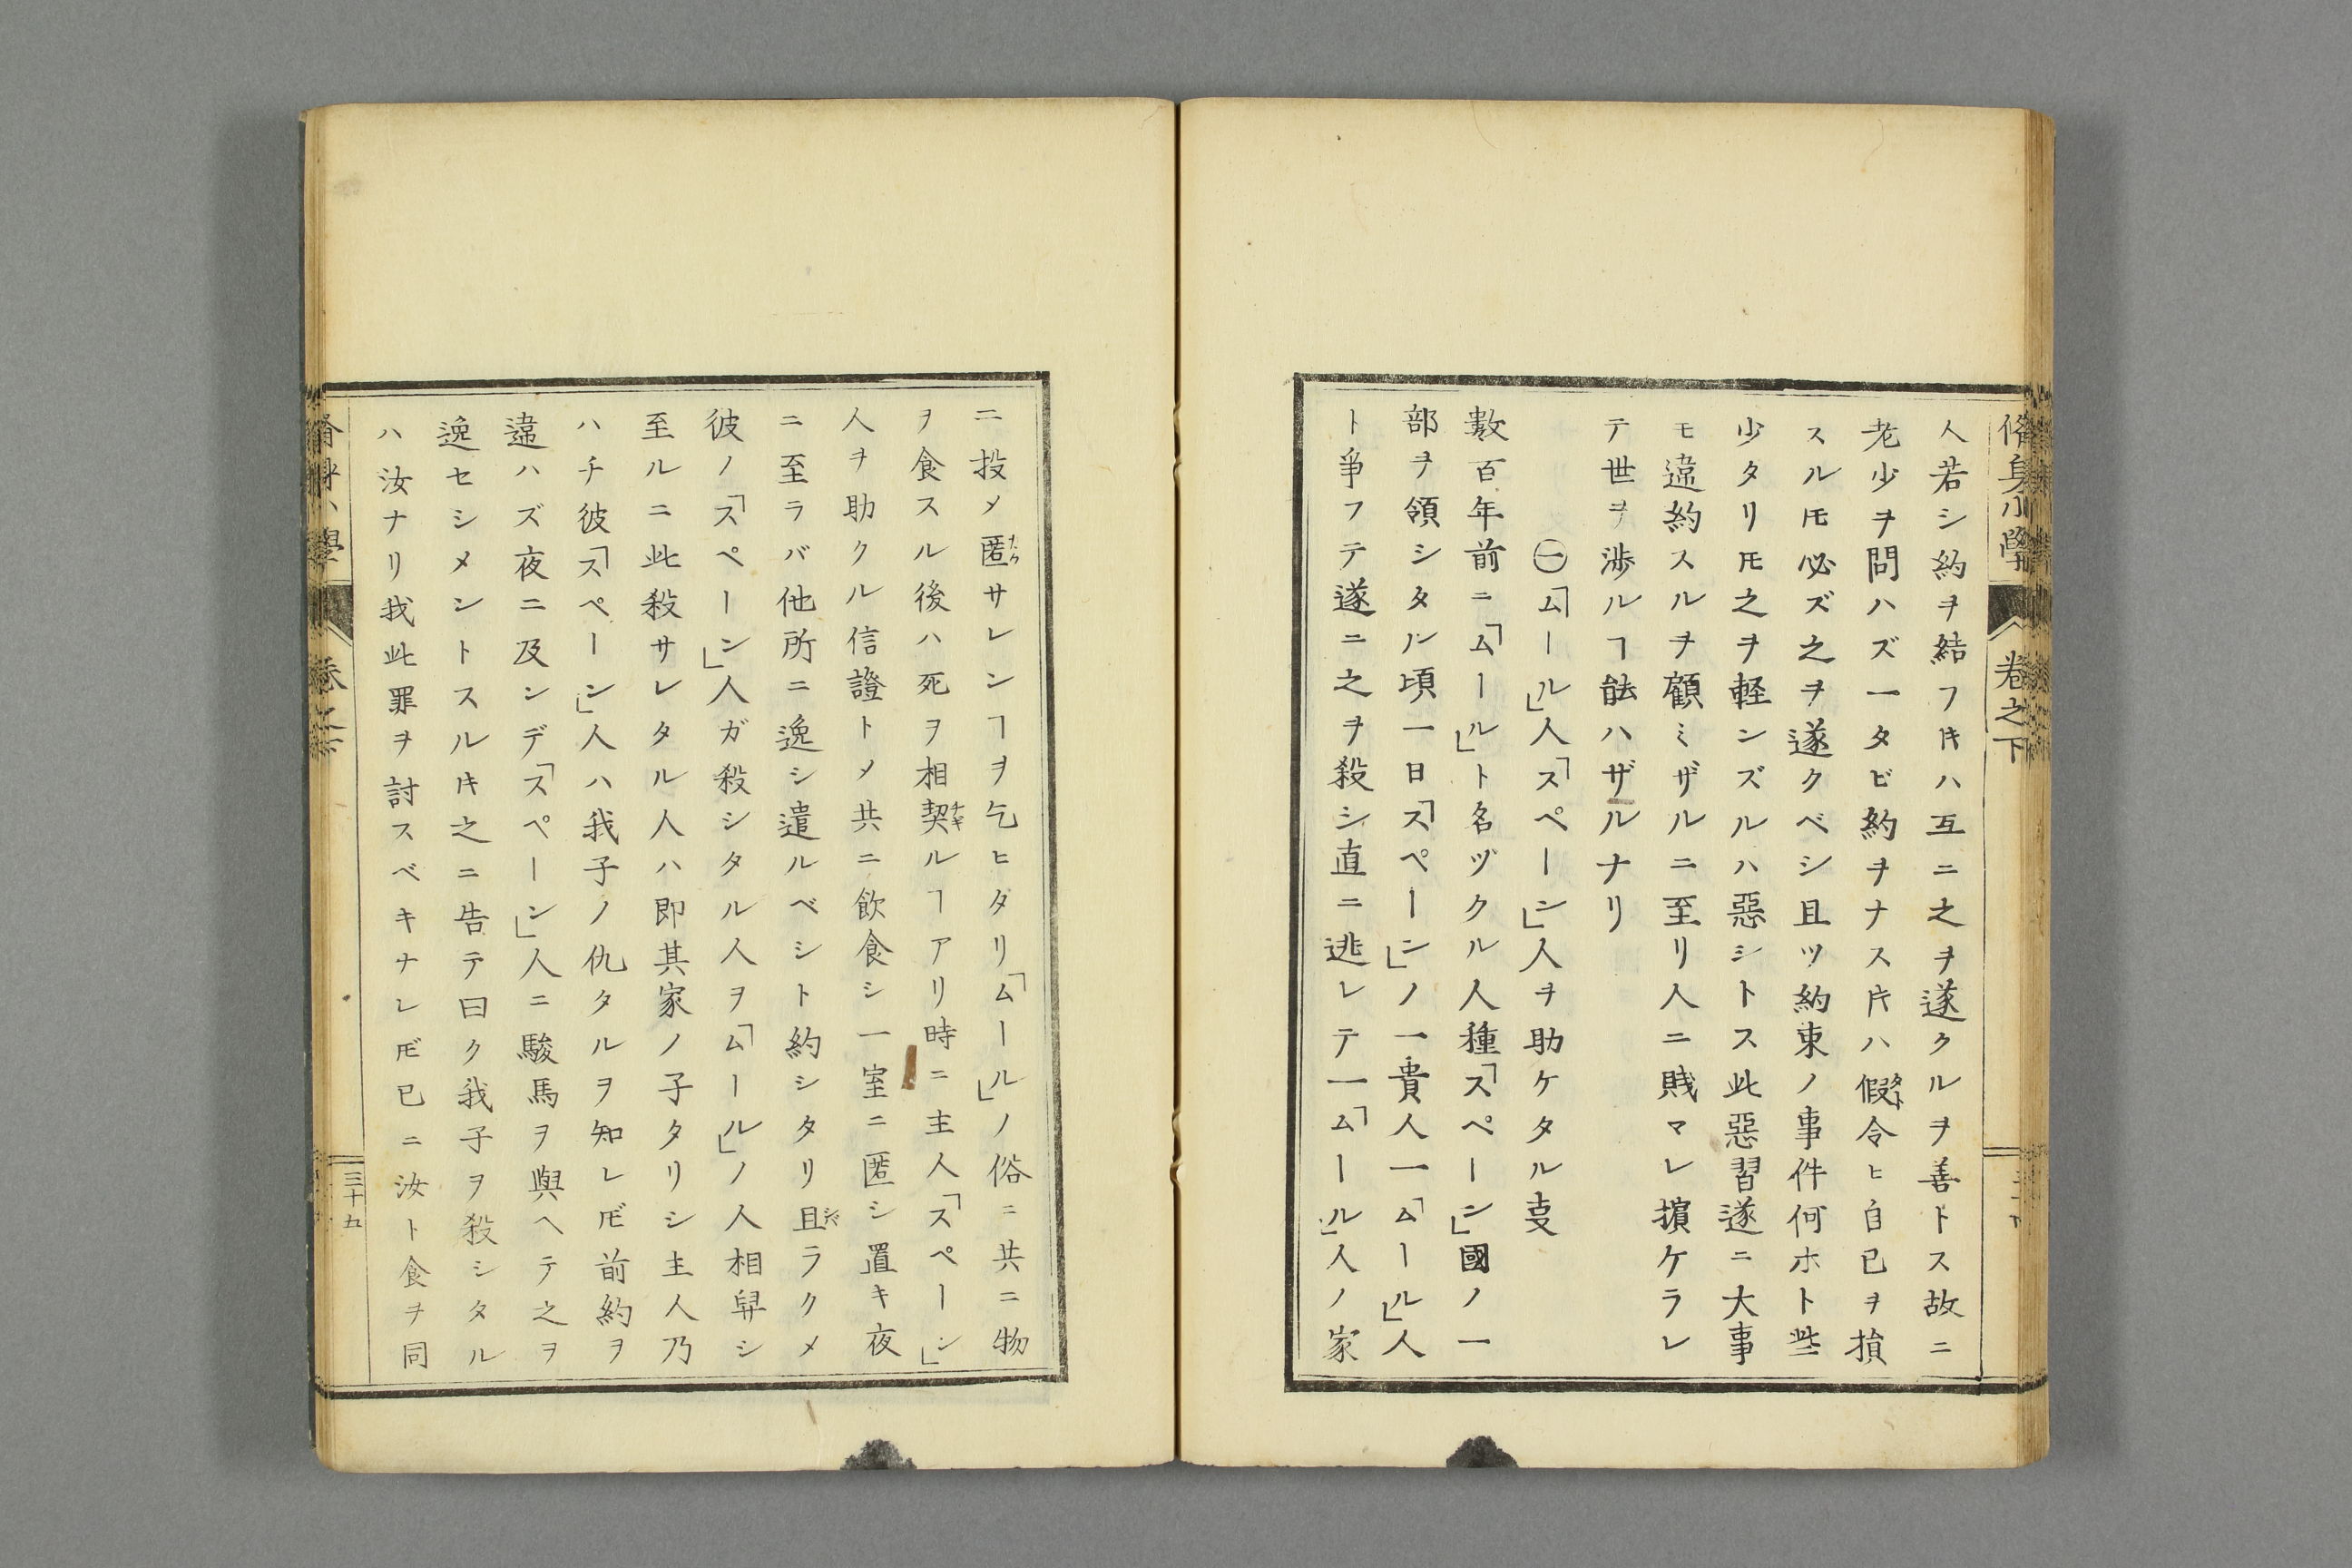 脩身小學 卷之下
人若シ約ヲ結フ𪜈ハ互ニ之ヲ遂クルヲ善トス故ニ
老少ヲ問ハズ一タビ約ヲナス𪜈ハ假令ヒ自已ヲ損
スル𪜈必ズ之ヲ遂クベシ且ツ約束ノ事件何ホト些
少タリ𪜈之ヲ軽ンズルハ惡シトス此惡習遂ニ大事
モ違約スルヲ顧ミザルニ至リ人ニ賎マレ擯ケラレ
テ世ヲ渉ルヿ能ハザルナリ
㊀「ムール」人「スペーン」人ヲ助ケタル叓
數百年前ニ「ムール」ト名ヅクル人種「スペーン」國ノ一
部ヲ領シタル頃一日「スペーン」ノ一貴人一「ムール」人
ト爭フテ遂ニ之ヲ殺シ直ニ逃レテ一「ムール」人ノ家
ニ投メ匿サレンヿヲ乞ヒタリ「ムール」ノ俗ニ共ニ物
ヲ食スル後ハ死ヲ相契ルヿアリ時ニ主人「スペーン」
人ヲ助クル信證トメ共ニ飲食シ一室ニ匿シ置キ夜
ニ至ラバ他所ニ逸シ遣ルベシト約シタリ且ラクメ
彼ノ「スペーン」人ガ殺シタル人ヲ「ムール」ノ人相舁シ
至ルニ此殺サレタル人ハ即其家ノ子タリシ主人乃
ハチ彼「スペーン」人ハ我子ノ仇タルヲ知レ𪜈前約ヲ
違ハズ夜ニ及ンデ「スペーン」人ニ駿馬ヲ與ヘテ之ヲ
逸セシメントスル𪜈之ニ告テ曰ク我子ヲ殺シタル
ハ汝ナリ我此罪ヲ討スベキナレ𪜈已ニ汝ト食ヲ同
三十五